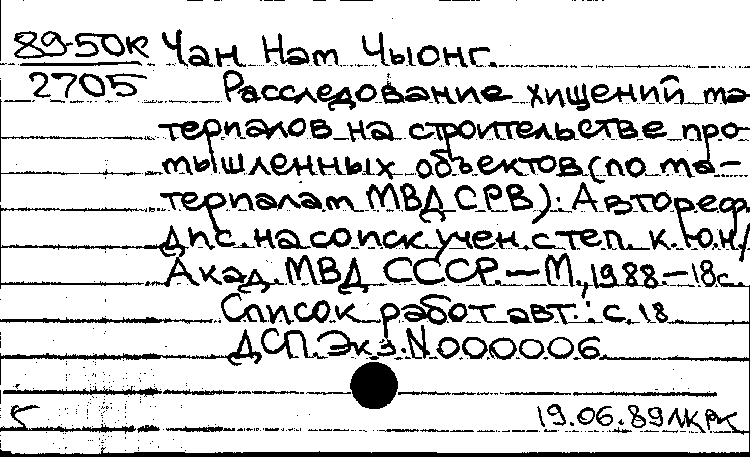 89-50к Чан Нат Чыонг.
2705 Расследование хищений ма
териалов на строительстве про
мышленных объектов (по ма-
териалам МВД СРВ): Автореф.
дис. на соиск. учен. степ. к.ю.н/
Акад. МВД СССР.—М.,1988.—18с.
Список работ авт.: с.18
ДСП. Экз. N 000006.
19.06.89